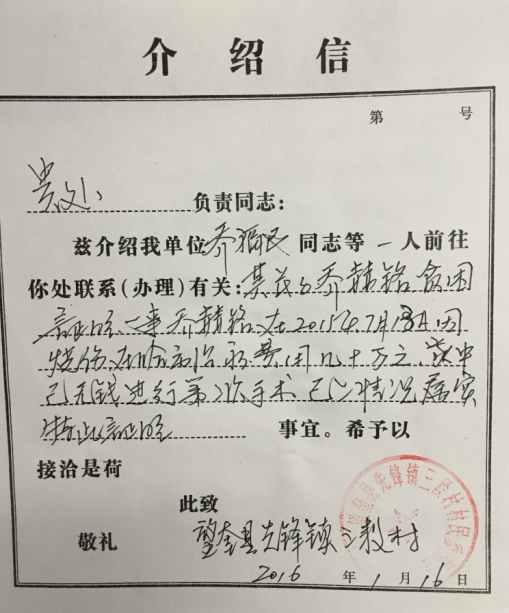 介绍信
第 号
负责同志：
兹介绍我单位乔 民同志等一人前往
你处联系（办理）有关：其 乔赫铭贫困
证明一事乔赫铭在2015年7月13日因
烧伤在哈 治 费用几十万之 家中
已无钱进行第2次手术 已以上情况属实
特此证明 事宜。希予以
接洽是荷
此致
敬礼 望奎县先锋镇三教村
2016年1月16日
先锋镇三 村村民